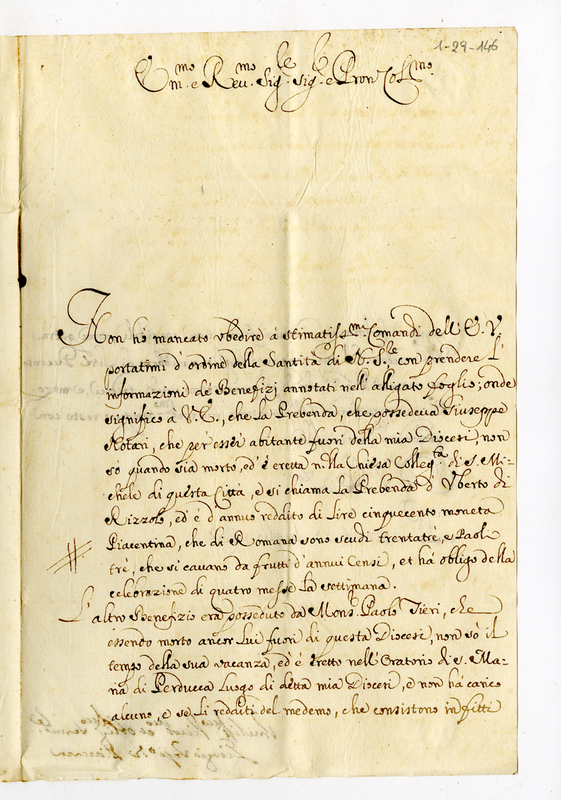 1-29-146
Em.mo e Rev.mo Sig.le Sig. e Pron Coll.mo
Non ho mancato ubedire à stimatiss.mi Comandi dell'E. V.
portatimi d'ordine della Santità di N. S.re con prendere l'
informazioni de Benefizj annotati nell'alligato foglio; onde
significo à V. E., che La Prebenda, che possedeva Giuseppe
Notari, che per esser abitante fuori della mia Diocesi, non
so quando sia morto, ed'è eretta nella Chiesa Colleg.ta di S. Mi-
chele di questa Città, e si chiama La Prebenda d'Uberto di
Rizzolo, ed'è d'annuo reddito di Lire cinquecento moneta
Piacentina, che di Romana sono scudi trentatrè, e Paoli
trè, che si cavano da frutti d'annui Censi, et hà obligo della
celebrazione di quatro messe La settimana.
L'altro Benefizio era posseduto da Mons. Paolo Tieri, che
essendo morto ancor Lui fuori di questa Diocesi, non sò il
tempo della sua vacanza, ed'è eretto nell'Oratorio di S. Ma-
ria di Perducca Luogo di detta mia Diocesi, e non hà carico
alcuno, e se li redditi del medemo, che consistono in fitti